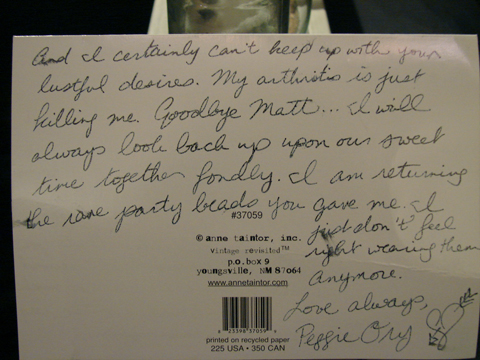 And I certainly can't keep up with your
lustful desires. My arthritis is just
killing me. Goodbye Matt... I will
always look back up upon our sweet
time together fondly. I am returning
the rave party beads you gave me. I
just don't feel
right wearing them
anymore.
Love always,
Peggie Ory
#37059
© anne taintor, inc.
vintage revisited™
p.o.box 9
youngsville, NM 87064
www.annetaintor.com
printed on recycled paper
225 USA • 350 CAN